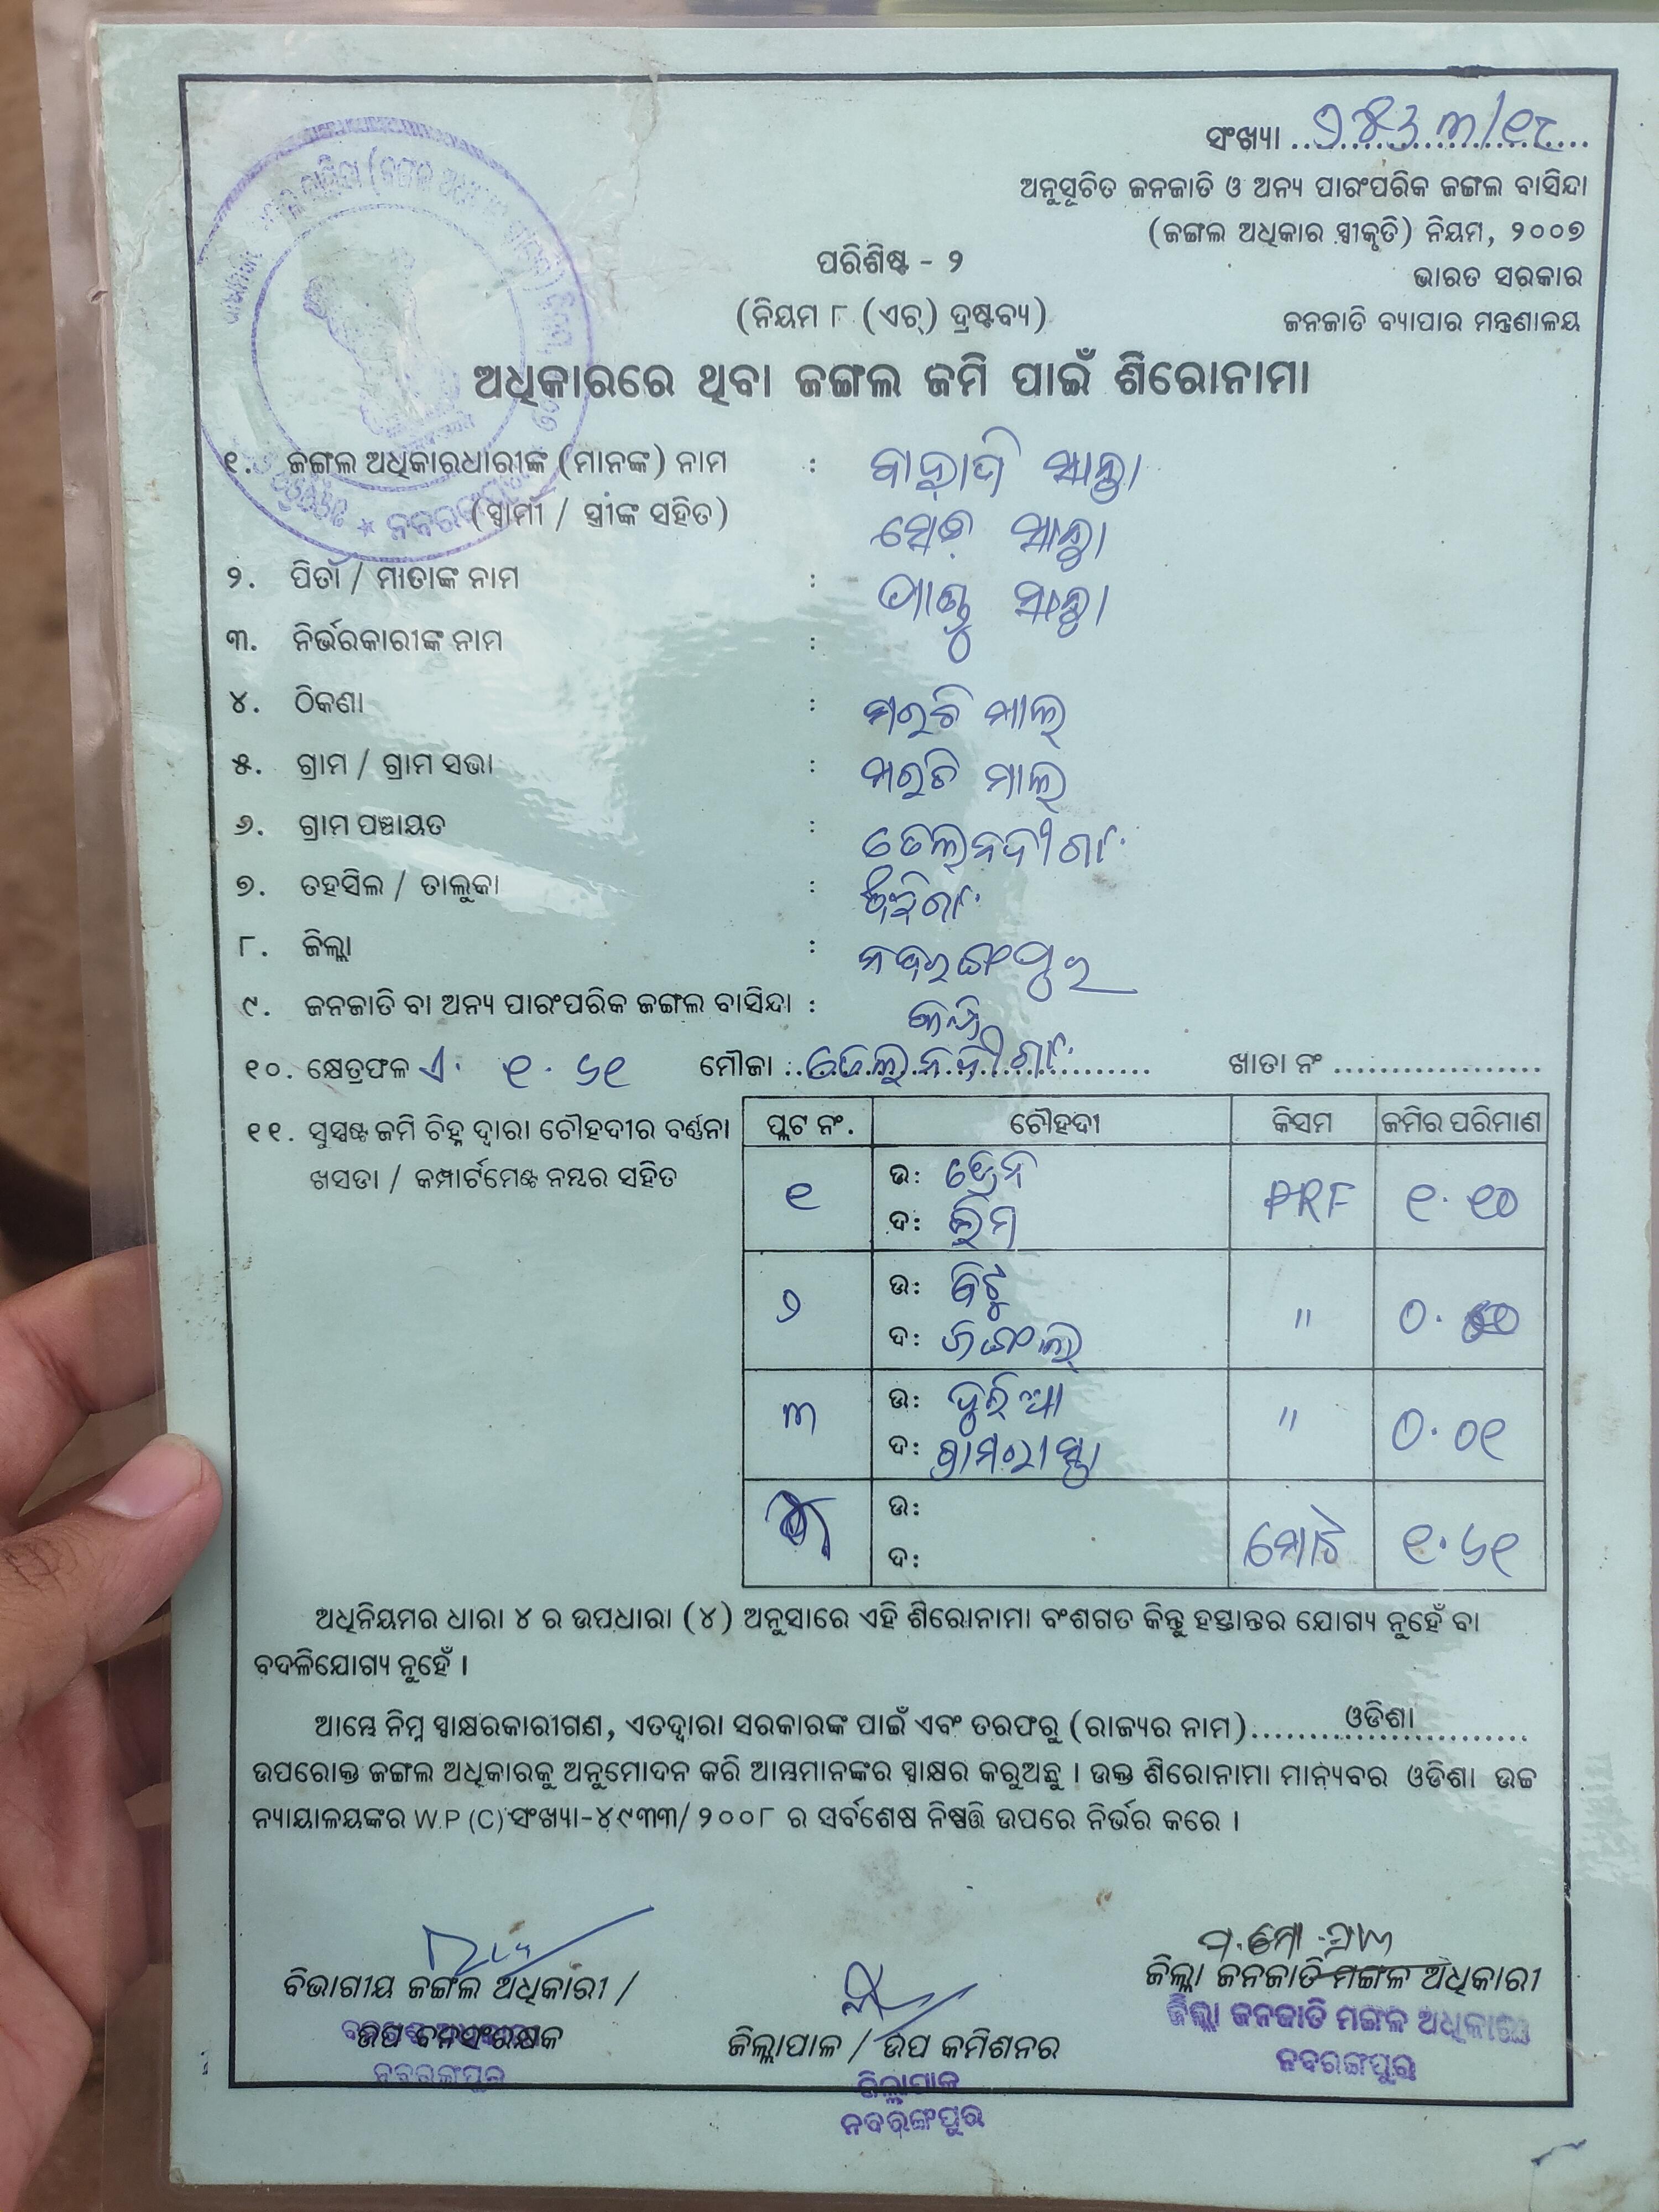 ସଂଖ୍ୟା
ଅନୁସୂଚିତ ଜନଜାତି ଓ ଅନ୍ୟ ପାରଂପରିକ ଜଙ୍ଗଲ ବାସିନ୍ଦା
(ଜଙ୍ଗଲ ଅଧିକାର ସ୍ୱୀକୃତି) ନିୟମ, ୨୦୦୭
ଭାରତ ସରକାର
ଜନଜାତି ବ୍ୟାପାର ମନ୍ତ୍ରଣାଳୟ
ପରିଶିଷ୍ଟ - ୨
(ନିୟମ ୮ (ଏଚ୍) ଦ୍ରଷ୍ଟବ୍ୟ)
ଅଧିକାରରେ ଥିବା ଜଙ୍ଗଲ ଜମି ପାଇଁ ଶିରୋନାମା
୧. ଜଙ୍ଗଲ ଅଧିକାରଧାରୀଙ୍କ (ମାନଙ୍କ) ନାମ :
(ସ୍ୱାମୀ / ସ୍ତ୍ରୀଙ୍କ ସହିତ)
୨. ପିତା / ମାତାଙ୍କ ନାମ :
୩. ନିର୍ଭରକାରୀଙ୍କ ନାମ :
୪. ଠିକଣା :
୫. ଗ୍ରାମ / ଗ୍ରାମ ସଭା :
୬. ଗ୍ରାମ ପଞ୍ଚାୟତ : ତେଲନଦୀଗାଂ
୭. ତହସିଲ / ତାଲୁକା : ଝରିଗାଂ
୮. ଜିଲ୍ଲା : ନବରଙ୍ଗପୁର
୯. ଜନଜାତି ବା ଅନ୍ୟ ପାରଂପରିକ ଜଙ୍ଗଲ ବାସିନ୍ଦା :
୧୦. କ୍ଷେତ୍ରଫଳ ଏ. ୧.୬୧ ମୌଜା ..ତେଲନଦୀଗାଂ.. ଖାତା ନଂ ..................
୧୧. ସୁସ୍ପଷ୍ଟ ଜମି ଚିହ୍ନ ଦ୍ୱାରା ଚୌହଦୀର ବର୍ଣ୍ଣନା
ଖସଡା / କମ୍ପାର୍ଟମେଣ୍ଟ ନମ୍ବର ସହିତ
ପ୍ଲଟ ନଂ. ଚୌହଦୀ କିସମ ଜମିର ପରିମାଣ
୧ ଉ: ଦ: PRF ୧.୧୦
୨ ଉ: ଦ: ଜଙ୍ଗଲ " ୦.
୩ ଉ: ଦ: ଗ୍ରାମରାସ୍ତା " ୦.୦୧
ଉ: ଦ: ମୋଟ ୧.୬୧
ଅଧିନିୟମର ଧାରା ୪ ର ଉପଧାରା (୪) ଅନୁସାରେ ଏହି ଶିରୋନାମା ବଂଶଗତ କିନ୍ତୁ ହସ୍ତାନ୍ତର ଯୋଗ୍ୟ ନୁହେଁ ବା
ବଦଳିଯୋଗ୍ୟ ନୁହେଁ ।
ଆମ୍ଭେ ନିମ୍ନ ସ୍ୱାକ୍ଷରକାରୀଗଣ, ଏତଦ୍ୱାରା ସରକାରଙ୍କ ପାଇଁ ଏବଂ ତରଫରୁ (ରାଜ୍ୟର ନାମ)......ଓଡିଶା......
ଉପରୋକ୍ତ ଜଙ୍ଗଲ ଅଧିକାରକୁ ଅନୁମୋଦନ କରି ଆମ୍ଭମାନଙ୍କର ସ୍ୱାକ୍ଷର କରୁଅଛୁ । ଉକ୍ତ ଶିରୋନାମା ମାନ୍ୟବର ଓଡିଶା ଉଚ୍ଚ
ନ୍ୟାୟାଳୟଙ୍କର W.P (C) ସଂଖ୍ୟା-୪୯୩୩/୨୦୦୮ ର ସର୍ବଶେଷ ନିଷ୍ପତ୍ତି ଉପରେ ନିର୍ଭର କରେ ।
ବିଭାଗୀୟ ଜଙ୍ଗଲ ଅଧିକାରୀ /
ଉପ ବନସଂରକ୍ଷକ
ନବରଙ୍ଗପୁର
ଜିଲ୍ଲାପାଳ / ଉପ କମିଶନର
ଜିଲ୍ଲାପାଳ
ନବରଙ୍ଗପୁର
ଜିଲ୍ଲା ଜନଜାତି ମଙ୍ଗଳ ଅଧିକାରୀ
ଜିଲ୍ଲା ଜନଜାତି ମଙ୍ଗଳ ଅଧିକାରୀ
ନବରଙ୍ଗପୁର